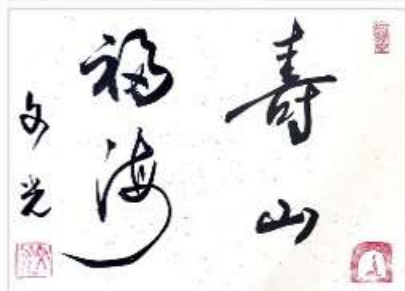 寿山
福海
文光